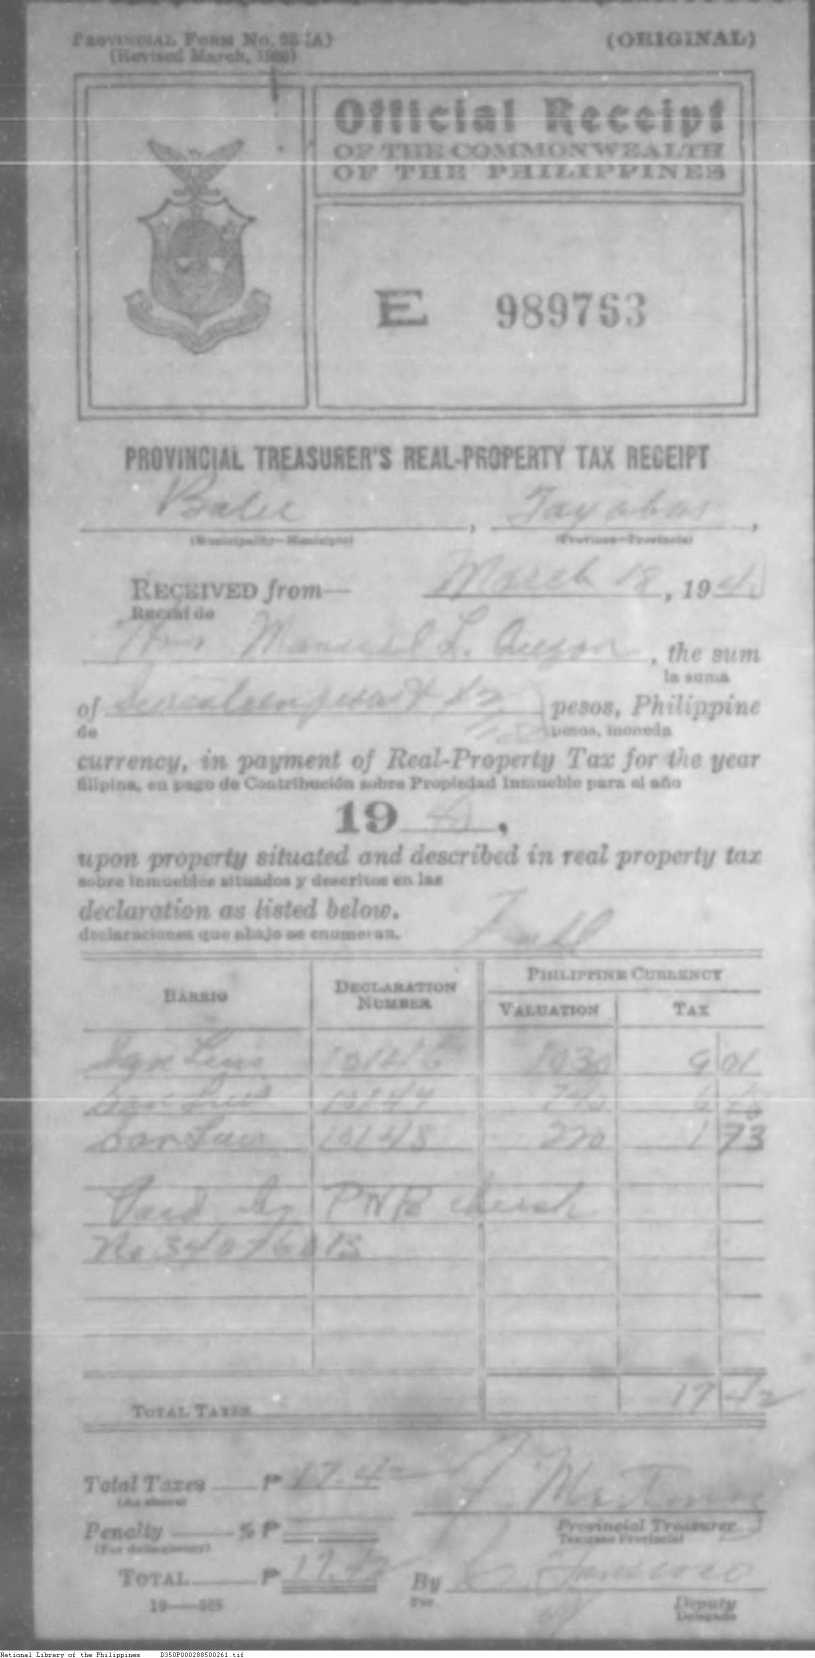 PROVINCIAL FORM No. (A)
(Revised March, )
(ORIGINAL)
Official Receipt
OF THE COMMONWEALTH
OF THE PHILIPPINES
E 989763
PROVINCIAL TREASURER'S REAL-PROPERTY TAX RECEIPT
Baler, Tayabas,
(Municipality—Municipio) (Province—Provincia)
RECEIVED from— March 18, 19
Recibí de
Hon Manuel L. Quezon, the sum
la suma
of pesos, Philippine
de pesos, moneda
currency, in payment of Real-Property Tax for the year
filipina, en pago de Contribución sobre Propiedad Inmueble para el año
19 ,
upon property situated and described in real property tax
sobre inmuebles situados y descritos en las
declaration as listed below.
declaraciones que abajo se enumeran.
Full
PHILIPPINE CURRENCY
BARRIO DECLARATION NUMBER VALUATION TAX
San Luis 10146 1030 9 01
San Luis 10147
San Luis 10148 220 1 73
Paid by PNB check
No
TOTAL TAXES 17 42
Total Taxes — ₱ 17.42
(As above)
Provincial Treasurer
Tesorero Provincial
Penalty — % ₱
(For delinquency)
TOTAL — ₱ 17.42
By
Por
Deputy
Delegado
National Library of the Philippines D350P000288500261.tif